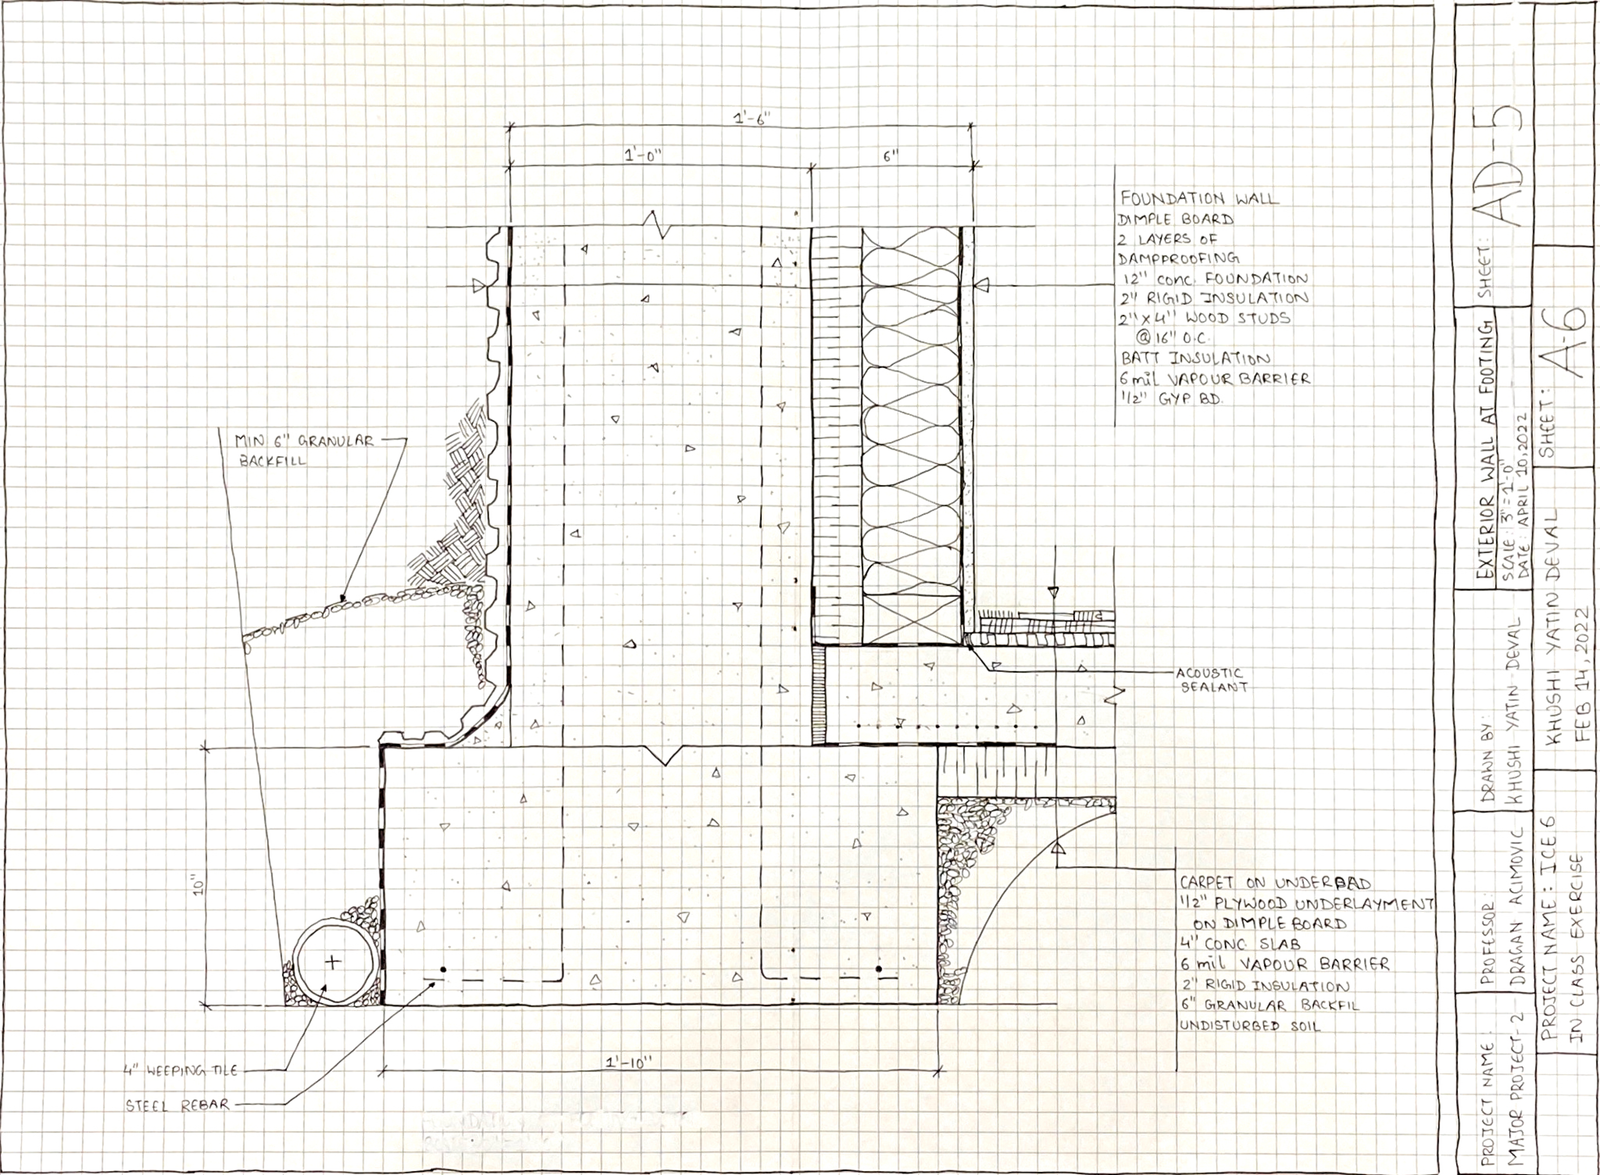 1'-6"
1'-0"
6"
FOUNDATION WALL
DIMPLE BOARD
2 LAYERS OF
DAMPPROOFING
12" CONC. FOUNDATION
2" RIGID INSULATION
2"X4" WOOD STUDS
@ 16" O.C.
BATT INSULATION
6 mil VAPOUR BARRIER
1/2" GYP BD.
MIN 6" GRANULAR
BACKFILL
ACOUSTIC
SEALANT
10"
CARPET ON UNDERPAD
1/2" PLYWOOD UNDERLAYMENT
ON DIMPLE BOARD
4" CONC SLAB
6 mil VAPOUR BARRIER
2" RIGID INSULATION
6" GRANULAR BACKFIL
UNDISTURBED SOIL
1'-10"
4" WEEPING TILE
STEEL REBAR
PROJECT NAME:
MAJOR PROJECT-2
PROFESSOR:
DRAGAN ACIMOVIC
DRAWN BY:
KHUSHI YATIN DEVAL
EXTERIOR WALL AT FOOTING
SCALE: 3" = 1'-0"
DATE: APRIL 10, 2022
SHEET: AD-5
PROJECT NAME: ICE 6
IN CLASS EXERCISE
KHUSHI YATIN DEVAL
FEB 14, 2022
SHEET: A-6